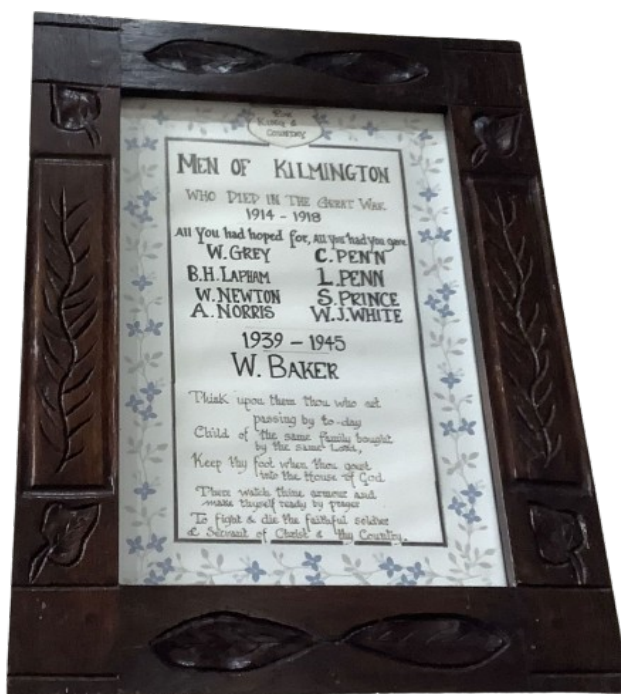 For
King &
Country
MEN OF KILMINGTON
WHO DIED IN THE GREAT WAR
1914 - 1918
All You had hoped for, All you had You gave
W. GREY C. PENN
B.H. LAPHAM L. PENN
W. NEWTON S. PRINCE
A. NORRIS W.J. WHITE
1939 - 1945
W. BAKER
Think upon them thou who art
passing by to-day
Child of the same family bought
by the same Lord,
Keep thy foot when thou goest
into the House of God
There watch thine armour and
make thyself ready by prayer
To fight & die the faithful soldier
& Servant of Christ & thy Country.